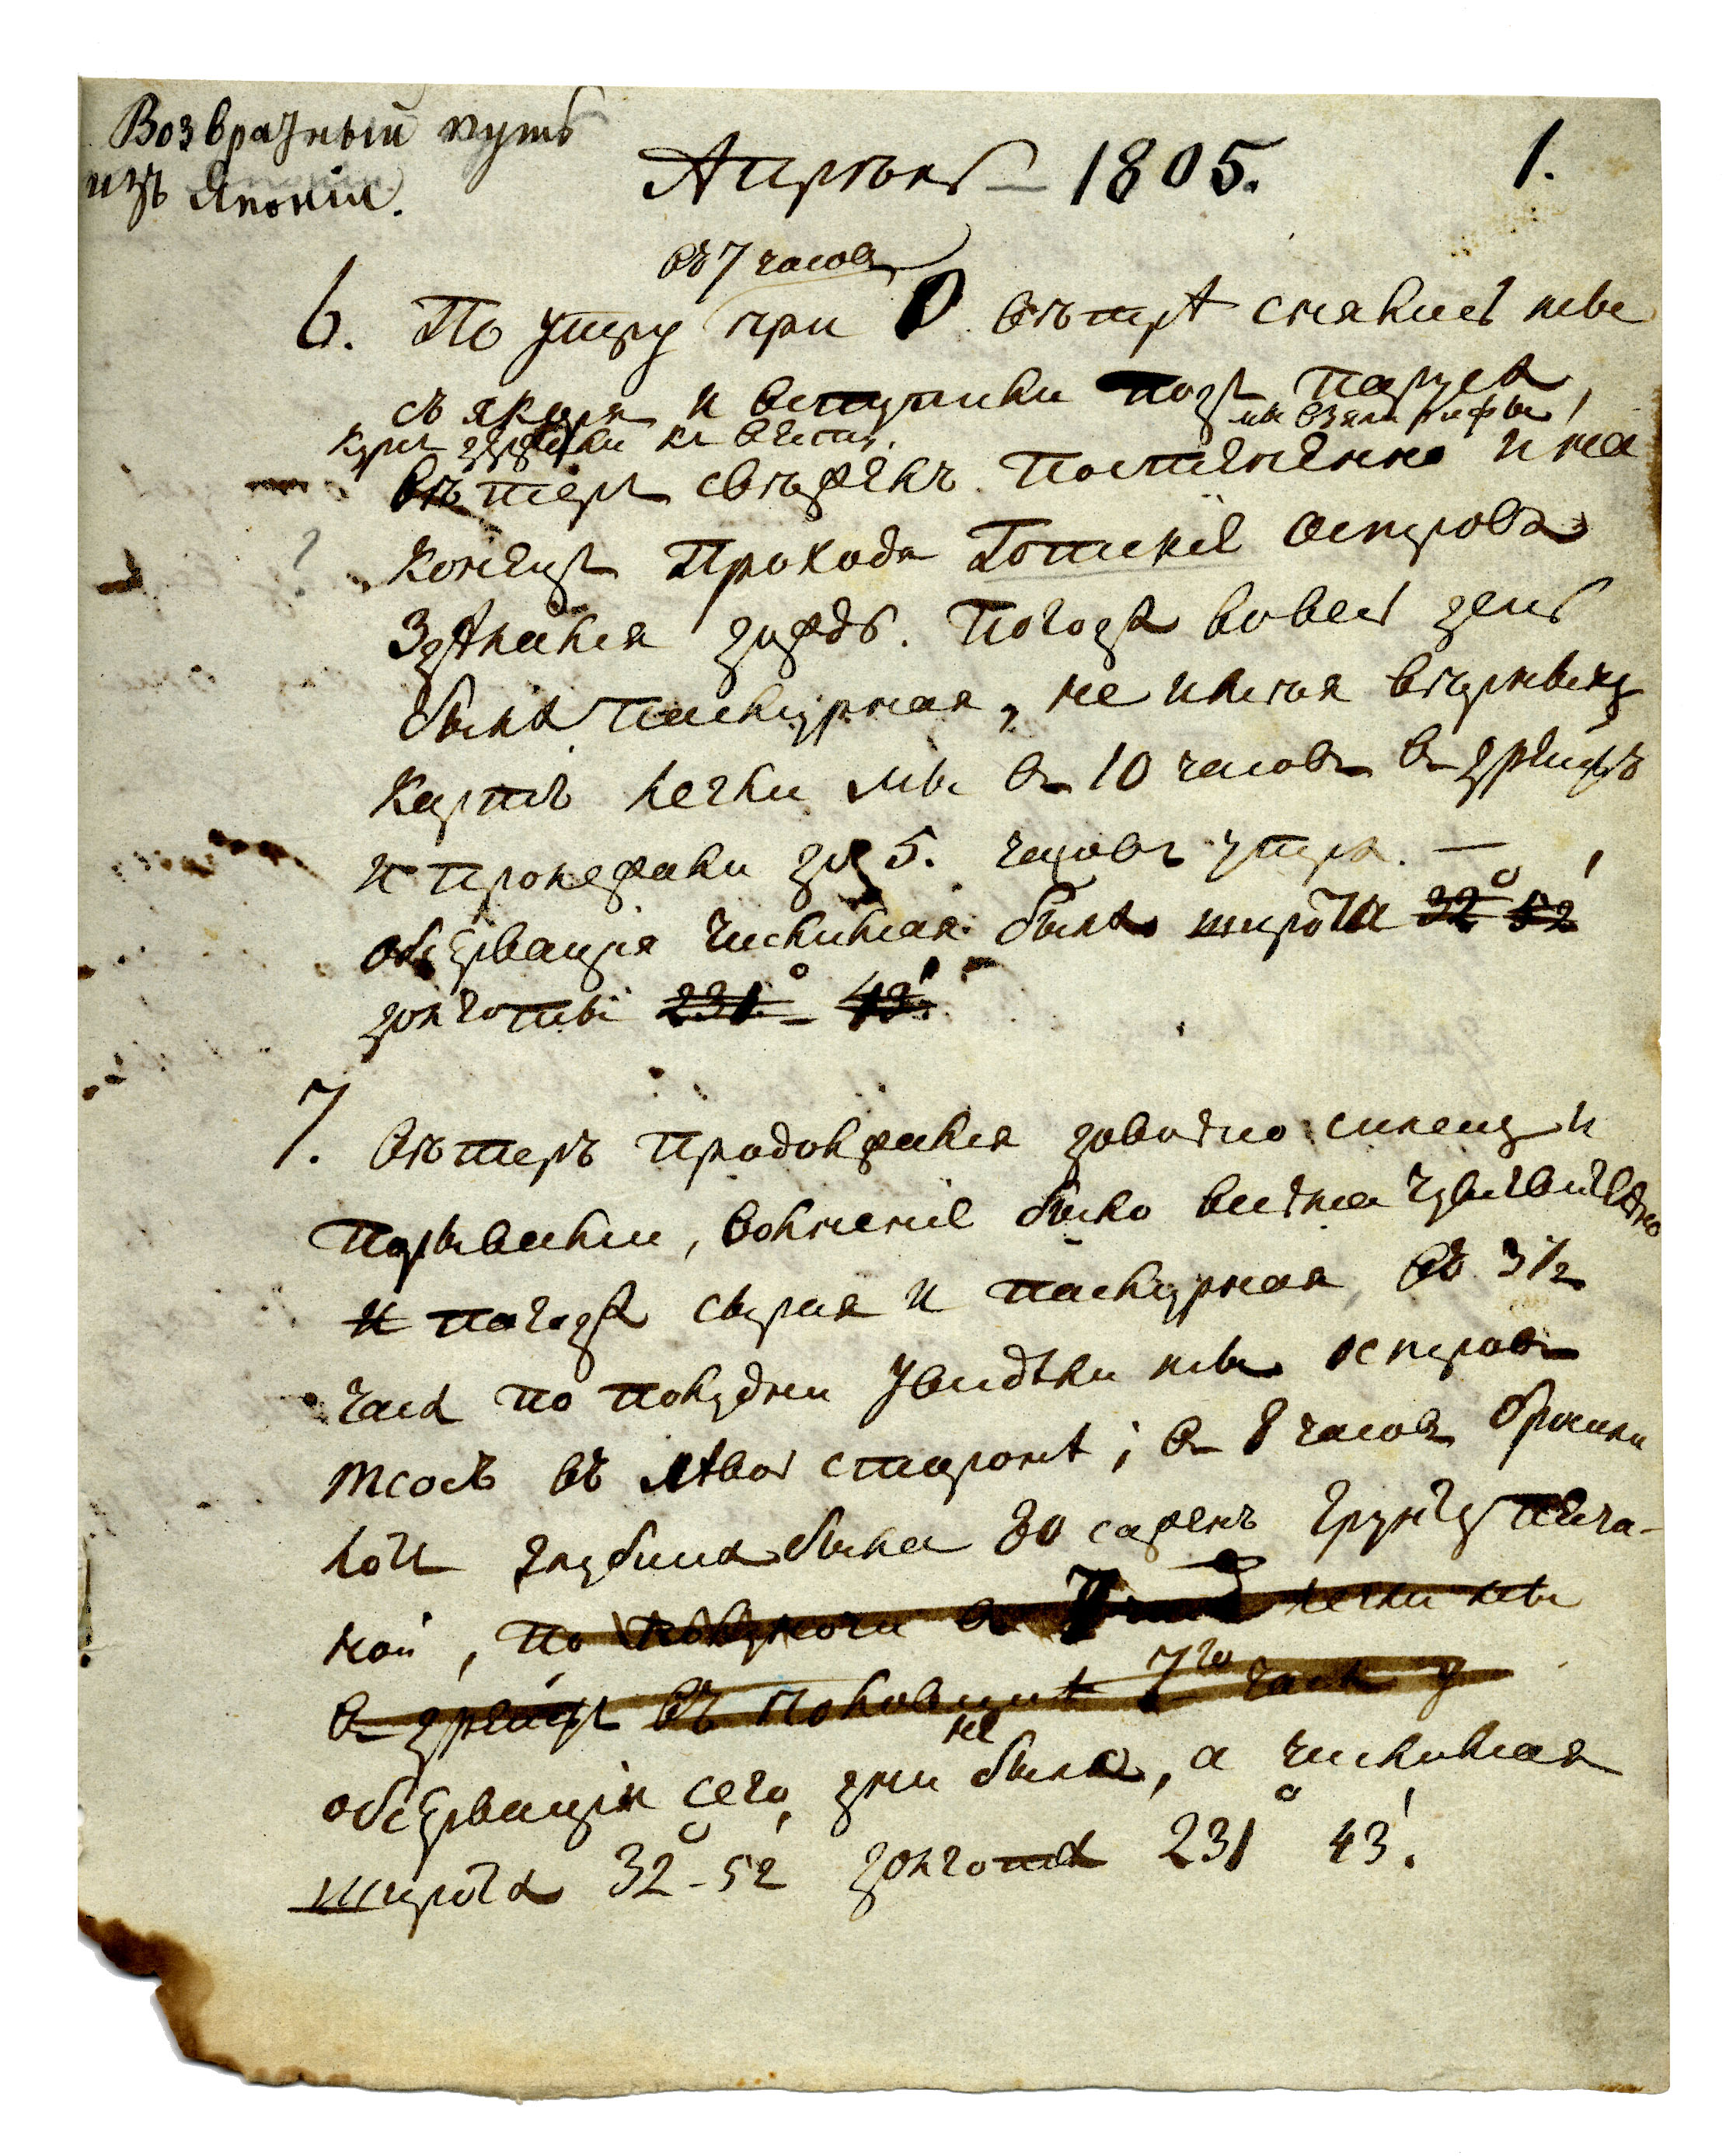 Возвратный путь
изъ Японіи.
Апрѣль 1805.
1.
въ 7 часовъ
6. По утру при О вѣтрѣ снялись мы
съ якоря и вступили подъ паруса,
мы взяли рифы,
курсъ держали къ весту.
вѣтеръ свѣжелъ постепенно и на
конецъ проходя Готскіе острова
здѣлался жидъ. Погода во весь день
была паскурная, не имѣя вѣрныхъ
картъ легли мы в 10 часовъ в дрейфъ
и пролежали до 5. часовъ утра. —
обсервація числимая была широта 32° 52'
долготы 231° 43'.
7. вѣтеръ продолжался довольно силенъ и
порывами, волненіе было весьма чувствительно
и погода сырая и паскурная, въ 3½
часа по полудни увидѣли мы островъ
Тсосъ въ лѣвой сторонѣ; в 8 часовъ бросили
лотъ глубина была 80 саженъ грунтъ песча-
ной, по полуночи в легли мы
в дрейфъ въ половинѣ 7го часа у
обсерваціи сего дни не было, а числимая
широта 32°-52' долгота 231° 43'.